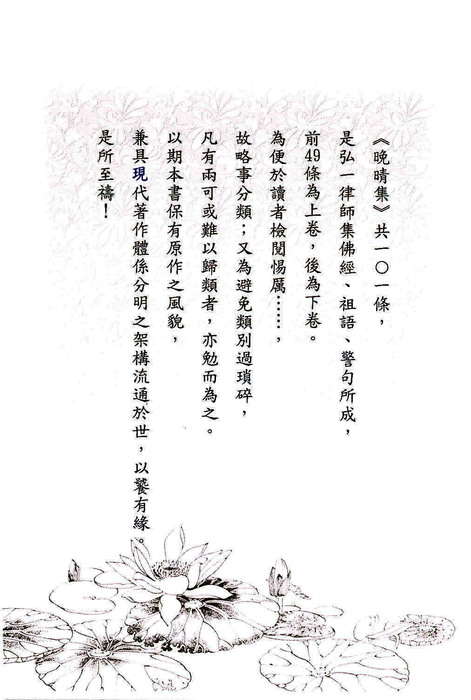 《晚晴集》共一〇一條，
是弘一律師集佛經、祖語、警句所成，
前49條為上卷，後為下卷。
為便於讀者檢閱惕厲……，
故略事分類；又為避免類別過瑣碎，
凡有兩可或難以歸類者，亦勉而為之。
以期本書保有原作之風貌，
兼具現代著作體係分明之架構流通於世，以饗有緣。
是所至禱！